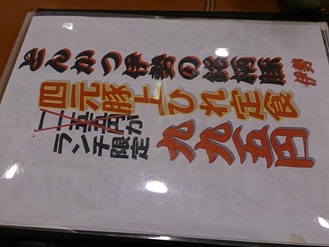 とんかつ伊勢の銘柄豚
四元豚上ひれ定食
一一五五円が
ランチ限定
九九五円